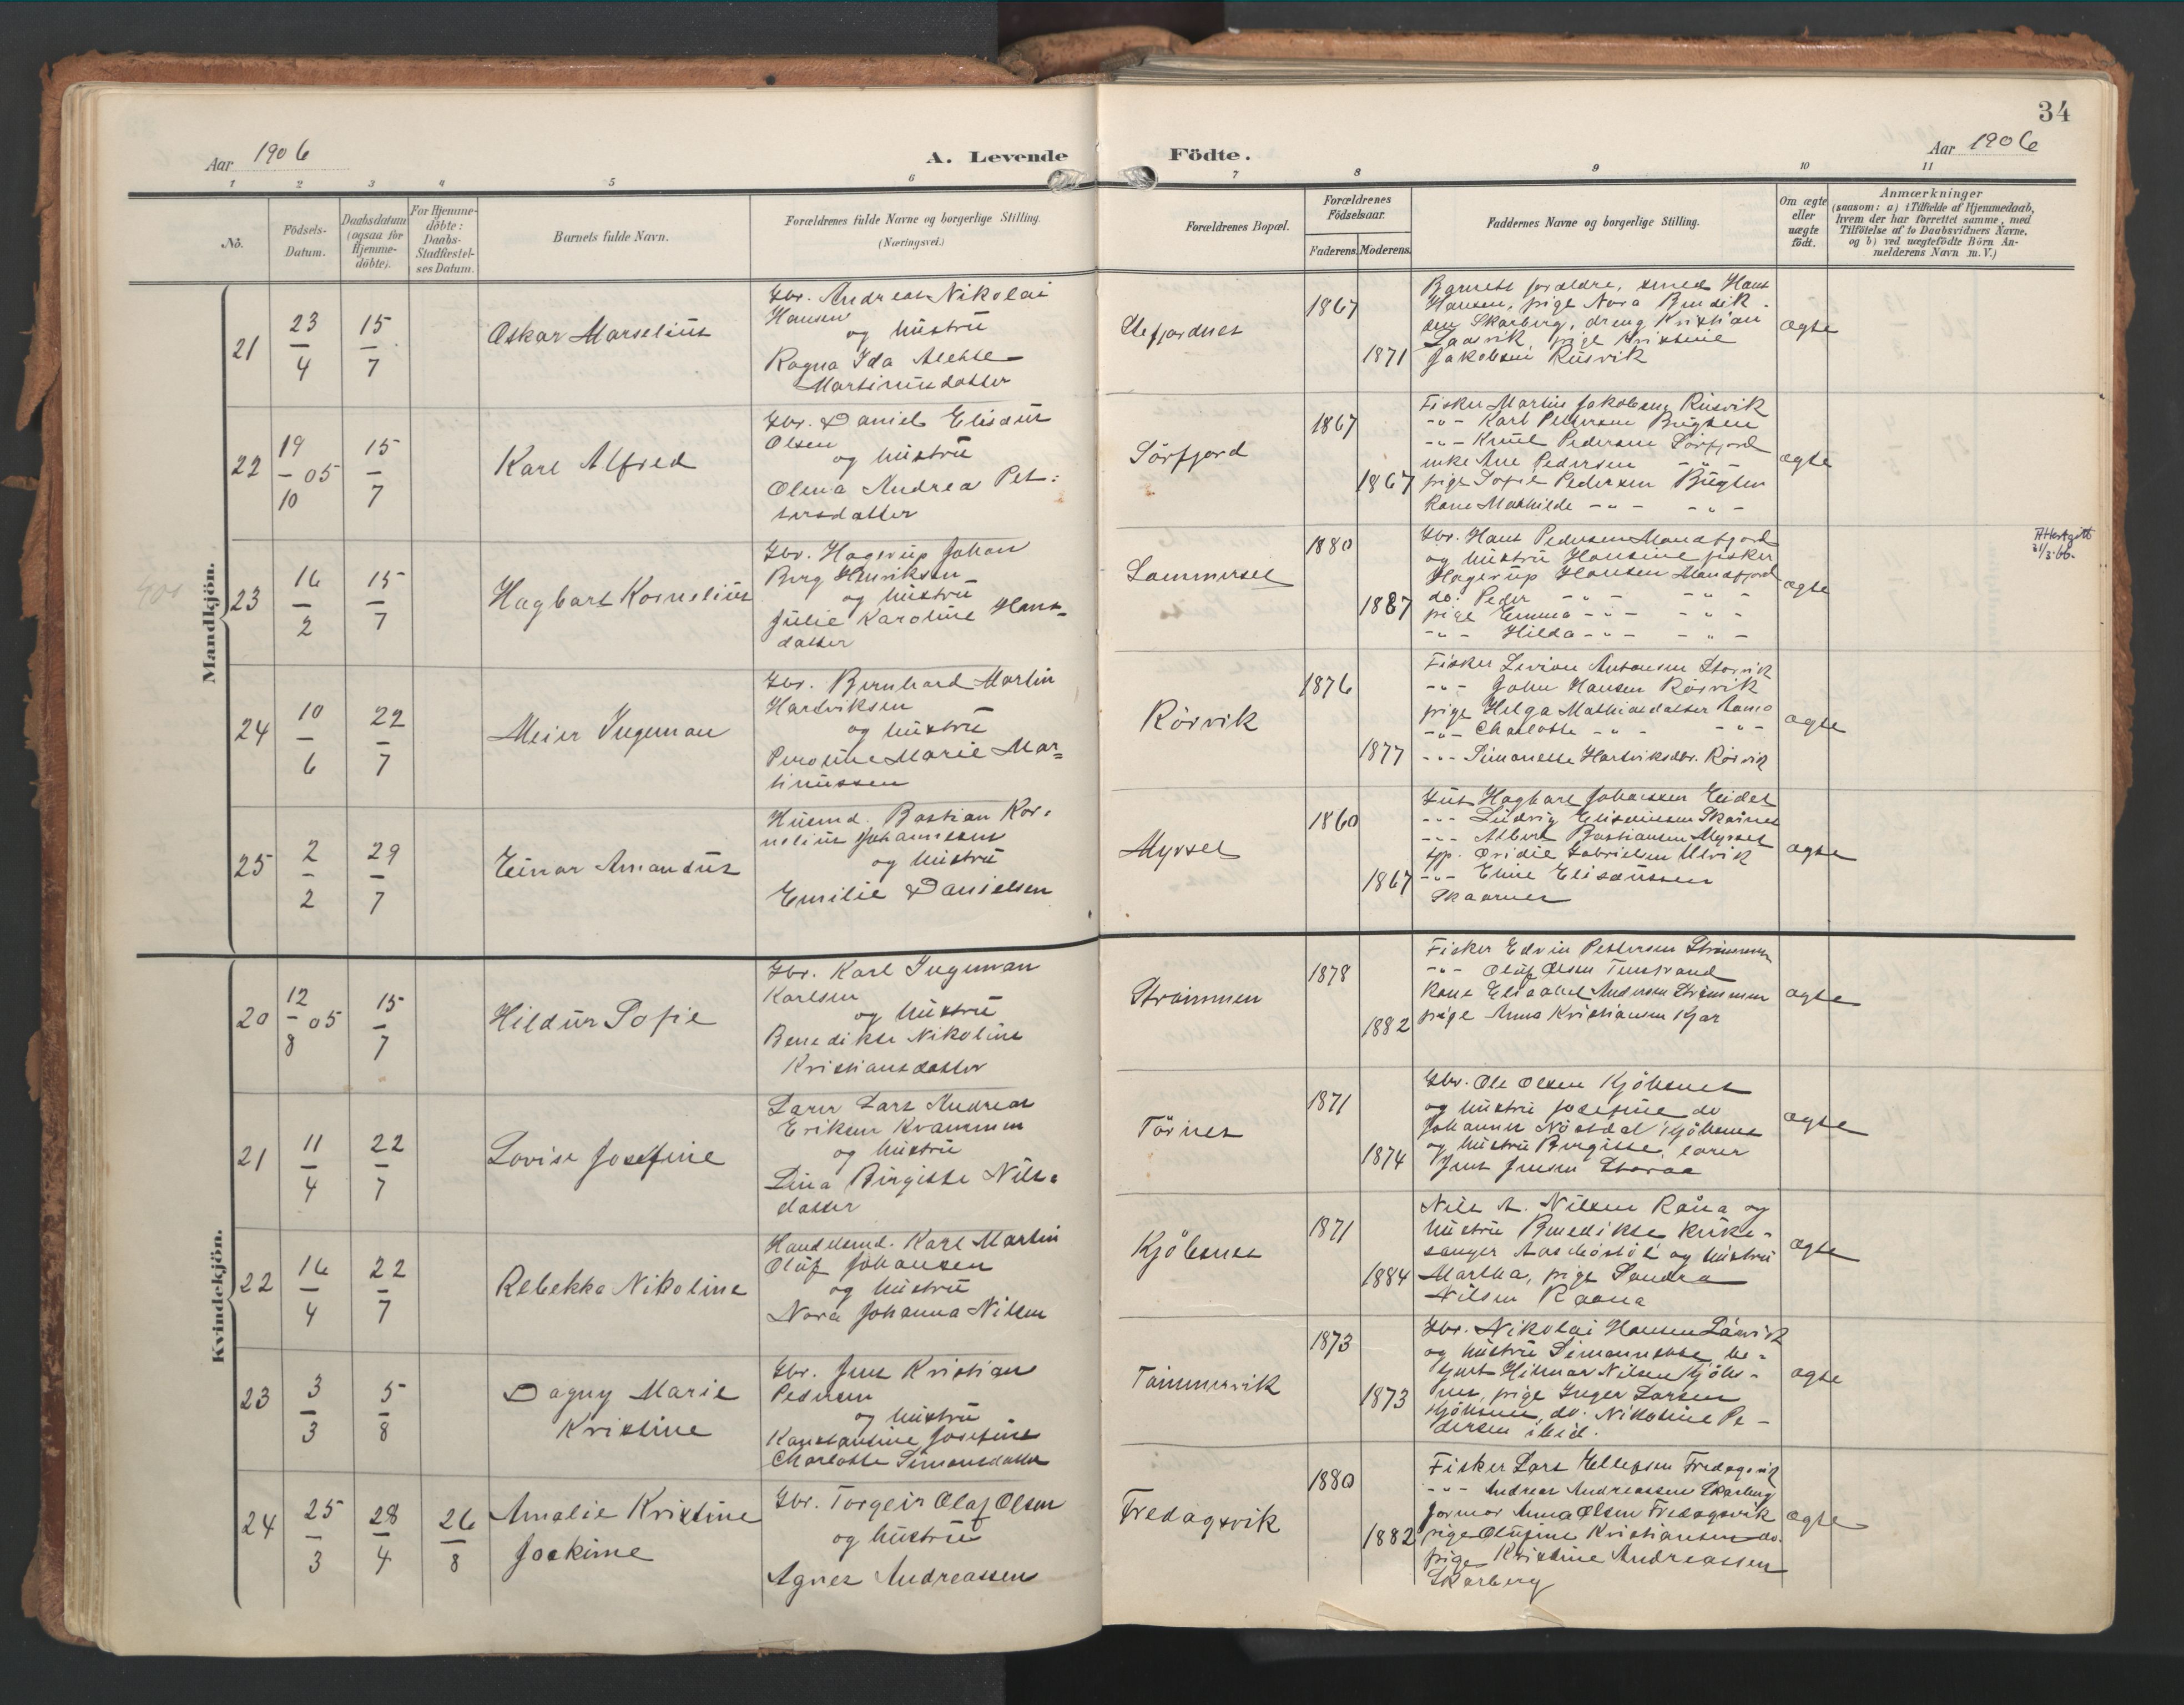 34
Aar 1906
A. Levende
Födte.
Aar 1906
1 2 3 4 5 6 7 8 9 10 11
Nô.
Födsels-
Datum.
Daabsdatum
(ogsaa for
Hjemme-
döbte).
For Hjemme-
döbte:
Daabs-
Stadfæstel-
ses Datum.
Barnets fulde Navn.
Forældrenes fulde Navne og borgerlige Stilling.
(Næringsvei.)
Forældrenes Bopæl.
Forældrenes
Födselsaar.
Faderens. Moderens.
Faddernes Navne og borgerlige Stilling.
Om ægte
eller
uægte
födt.
Anmærkninger
(saasom: a) i Tilfælde af Hjemmedaab,
hvem der har forrettet samme, med
Tilföielse af to Daabsvidners Navne,
og b) ved uægtefödte Börn An-
melderens Navn m. V.)
Mandkjön.
21
23
4
15
7
Oskar Marselius
Gbr. Andreas Nikolai
Hansen
og hustru
Ragna Ida Alette
Martinusdatter
1867
1871
Barnets forældre, smed Hans
Hansen, pige Nora Bendik-
sen Skarberg, dreng Kristian
Laavik, pige Kristine
Jakobsen Rusvik
ægte
22
19
- 05
10
15
7
Karl Alfred
Gbr. Daniel Elisæus
Olsen
og hustru
Olena Andrea Pet:
tersdatter
Sörfjord
1867
1867
Fisker Martin Jakobsen Rusvik
-"- Karl Pedersen Bugten
-"- Knut Pedersen Sörfjord
enke Ane Pedersen -"-
pige Sofie Pedersen Bugten
Kone Mathilde -"- -"-
ægte
23
16
2
15
7
Hagbart Kornelius
Gbr. Hagerup Johan
Berg Henriksen
og hustru
Julie Karoline Hans-
datter
Sommerset
1880
1887
Gbr. Hans Pedersen Mandfjord
og hustru Hansine, fisker
Hagerup Hansen Mandfjord
do: Peder -"- -"-
pige Emma -"- -"-
-"- Hilda -"- -"-
ægte
Attestgitt
21/3 66.
24
10
6
22
7
Meier Ingeman
Gbr. Bernhard Martin
Hartviksen
og hustru
Peroline Marie Mar=
tinussen
Rörvik
1876
1877
Fisker Levion Antonsen Storvik
-"- John Hansen Rörvik
pige Helga Mathiasdatter
-"- Charlotte -"- -"-
-"- Simonette Hartviksdtr. Rörvik
ægte
25
2
2
29
7
Einar Amandus
Husmd. Bastian Kor-
nelius Johannesen
og hustru
Emilie Danielsen
Myrset
1860
1867
Gut Hagbart Johansen Eidet
-"- Ludvig Elisæussen Skaarnes
-"- Albert Bastiansen Myrset
tjp. Ovidie Gabrielsen Ulvik
-"- Eline Elisæussen
Skaarnes
ægte
Kvindekjön.
20
12
- 05
8
15
7
Hildur Sofie
Gbr. Karl Ingeman
Karlsen
og hustru
Benedikte Nikoline
Kristiansdatter
Strömmen
1878
1882
Fisker Edvin Pettersen Strömmen
-"- Oluf Olsen
Kone Elisabet Andersen Strömmen
pige Anna Kristiansen Kjær
ægte
21
11
4
22
7
Lovise Josefine
Lærer Lars Andreas
Eriksen Krammen
og hustru
Lina Birgitte Nils-
datter
Törnes
1871
1874
Gbr. Ole Olsen Kjöbsnes
og hustru Josefine do
Johannes Nöstdal Kjöbsnes
og hustru Birgitte, lærer
Jens Jensen Storaa
ægte
22
16
4
22
7
Rebekka Nikoline
Handelsmd. Karl Martin
Oluf Johansen
og hustru
Nora Johanna Nilsen
Kjöbsnes
1871
1884
Nils A. Nilsen Raana og
hustru Benedikte, kirke-
sanger og hustru
Martha, pige Sandra
Nilsen Raana
ægte
23
3
3
5
8
Dagny Marie
Kristine
Gbr. Jens Kristian
Pedersen
og hustru
Konstantine Josefine
Charlotte Simonsdatter
Tömmervik
1873
1873
Gbr. Nikolai Hansen Laavik
og hustru Simonette, be-
tjent Hilmar Nilsen Kjöbs-
nes, pige Inger Larsen
Kjöbsnes, do. Nikoline Pe-
dersen ibid.
ægte
24
25
3
28
4
26
8
Amalie Kristine
Joakime
Gbr. Torgeir Olaf Olsen
og hustru
Agnes Andreassen
Fredagsvik
1880
1882
Fisker Lars Ellefsen Fredagsvik
-"- Andreas Andreassen Skarberg
farmor Anna Olsen Fredagsvik
pige Olufine Kristiansen do.
pige Kristine Andreassen
Skarberg
ægte